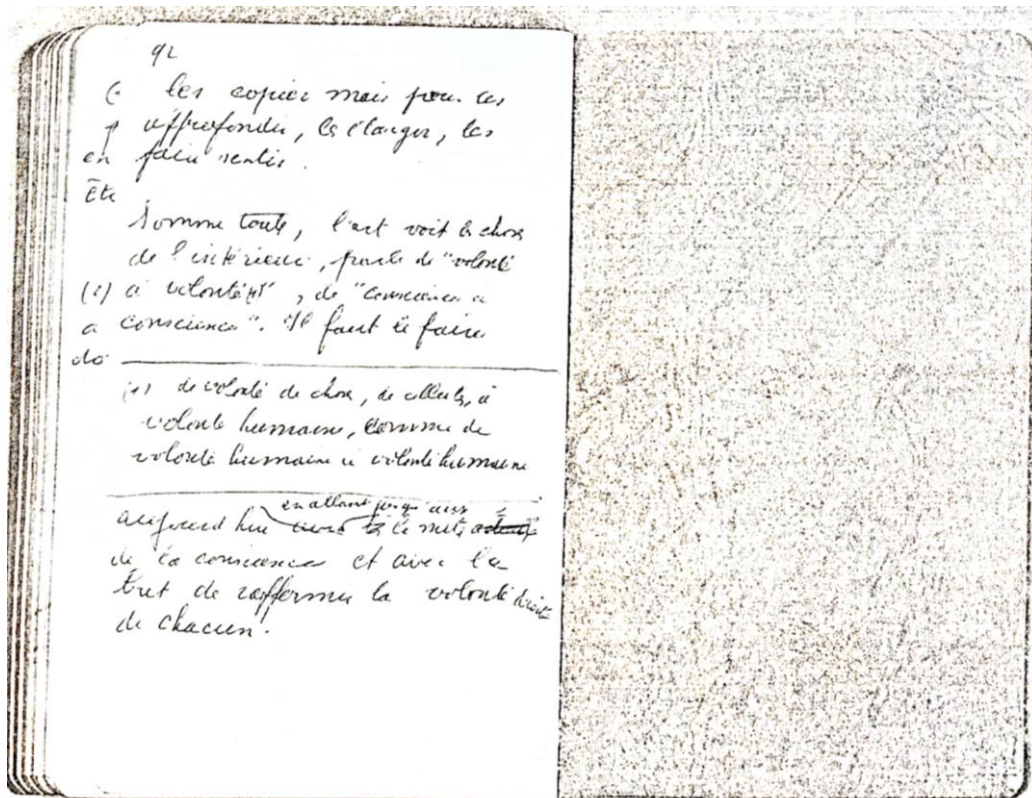 92
les copier mais pour les
approfondir, les élargir, les
faire sentir.
Somme toute, l'art voit la chose
de l'intérieur, parle de "volonté
à volonté(1)", de "conscience à
conscience". Il faut le faire
(1) de volonté de chose, de cellule, à
volonté humaine, comme de
volonté humaine à volonté humaine
en allant jusqu'aux
aujourd'hui
de la conscience et avec le
but de raffermir la volonté droite
de chacun.